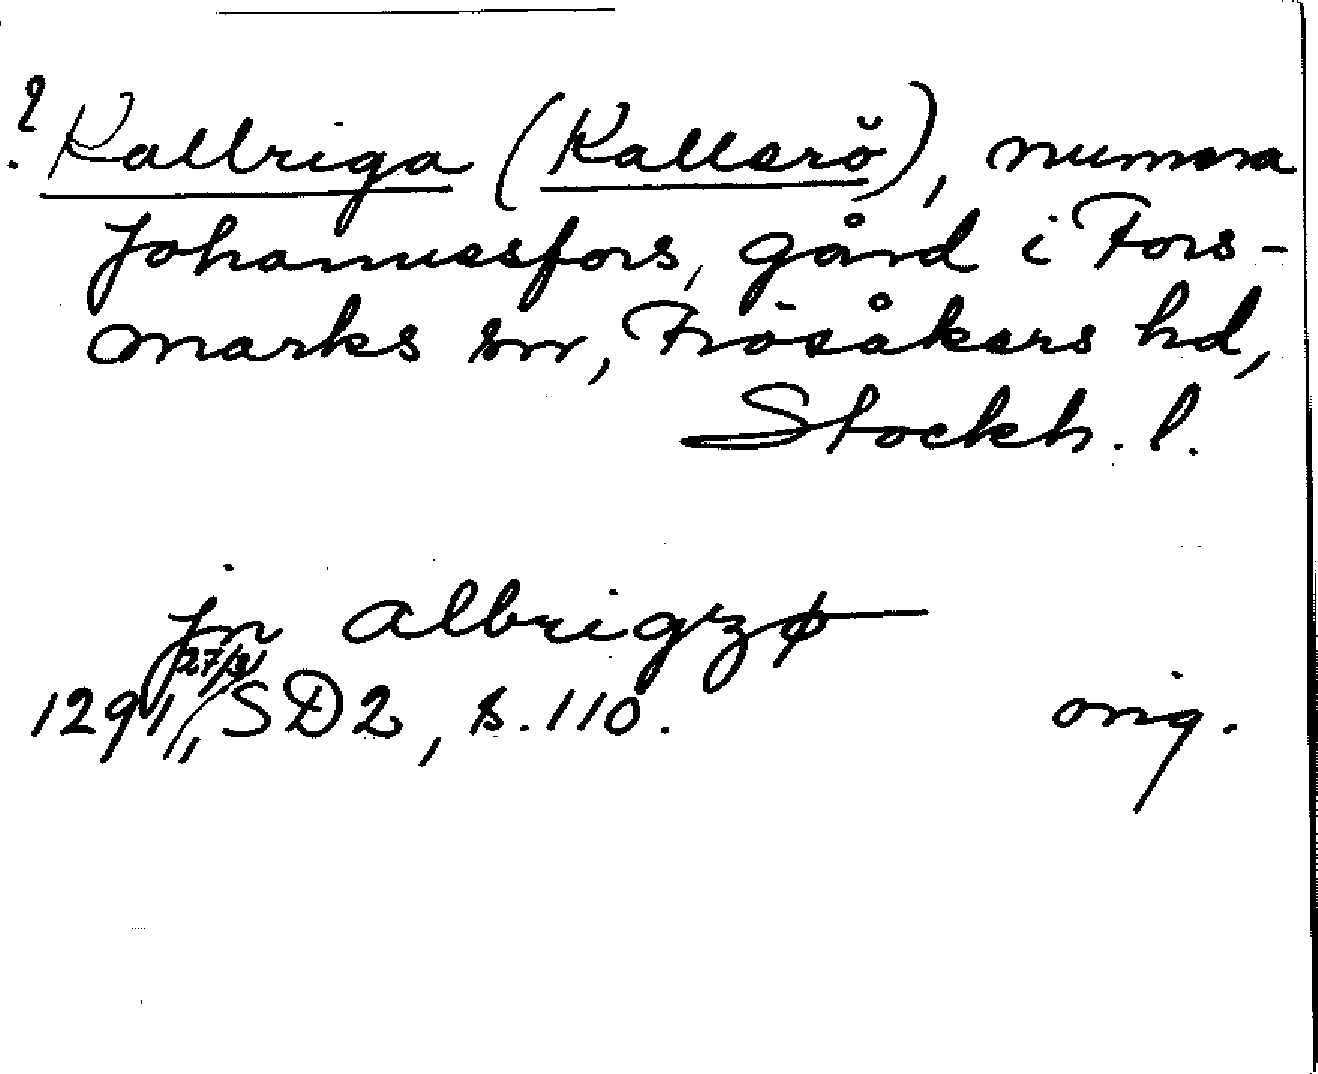 ? Kallriga (Kallerö), numera
Johannesfors, gård i Fors-
marks sn, Frösåkers hd,
Stockh. l.
jn albrigzø
1291 27/8, SD2, s. 110. orig.